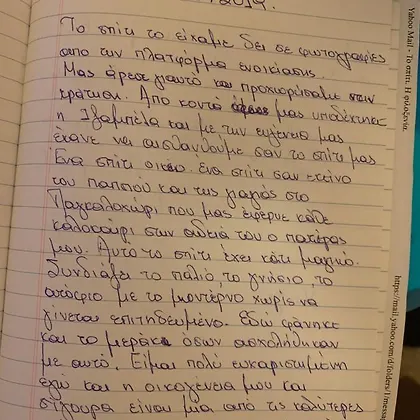 2019.
Το σπίτι το είχαμε δει σε φωτογραφίες
απο την πλατφόρμα ενοικίασης.
Μας άρεσε γιαυτό και προχωρήσαμε στην
κράτηση. Απο κοντά μας υποδέχτηκε
η Ιζαμπέλα και με την ευγένεια μας
έκανε να αισθανθούμε σαν το σπίτι μας
Ένα σπίτι ένα σπίτι σαν εκείνο
του παππού και της γιαγιάς στο
Παγκαλοχώρι που μας έφερνε κάθε
καλοκαίρι στην απλεία του ο πατέρας
μου. Αυτό το σπίτι έχει κάτι μαγικό.
Συνδιάζει το παλιό, το γνήσιο, το
ατόφιο με το μοντέρνο χωρίς να
γίνεται επιτηδευμένο. Εδώ φάνηκε
και το μεράκι όσων ασχολήθηκαν
με αυτό. Είμαι πολύ ευχαριστημένη
εγώ και η οικογένεια μου και
σίγουρα είναι μια από τις καλύτερες
Yahoo Mail - Το σπίτι. Η φιλοξενία.
https://mail.yahoo.com/d/folders/1/messa